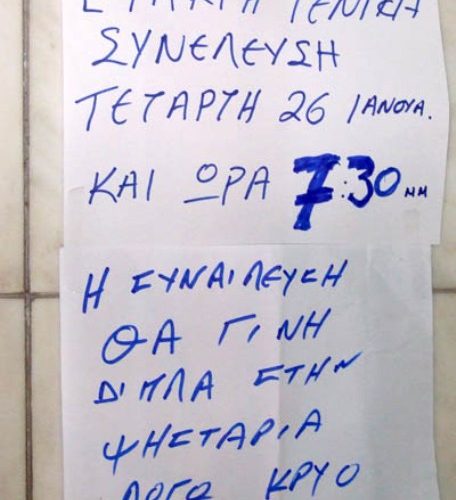 ΓΕΝΙΚΗ
ΣΥΝΕΛΕΥΣΗ
ΤΕΤΑΡΤΗ 26 ΙΑΝΟΥΑ.
ΚΑΙ ΩΡΑ 7:30 ΜΜ
Η ΣΥΝΑΙΛΕΥΣΗ
ΘΑ ΓΙΝΗ
ΔΙΠΛΑ ΣΤΗΝ
ΨΗΣΤΑΡΙΑ
ΛΟΓΩ ΚΡΥΟ